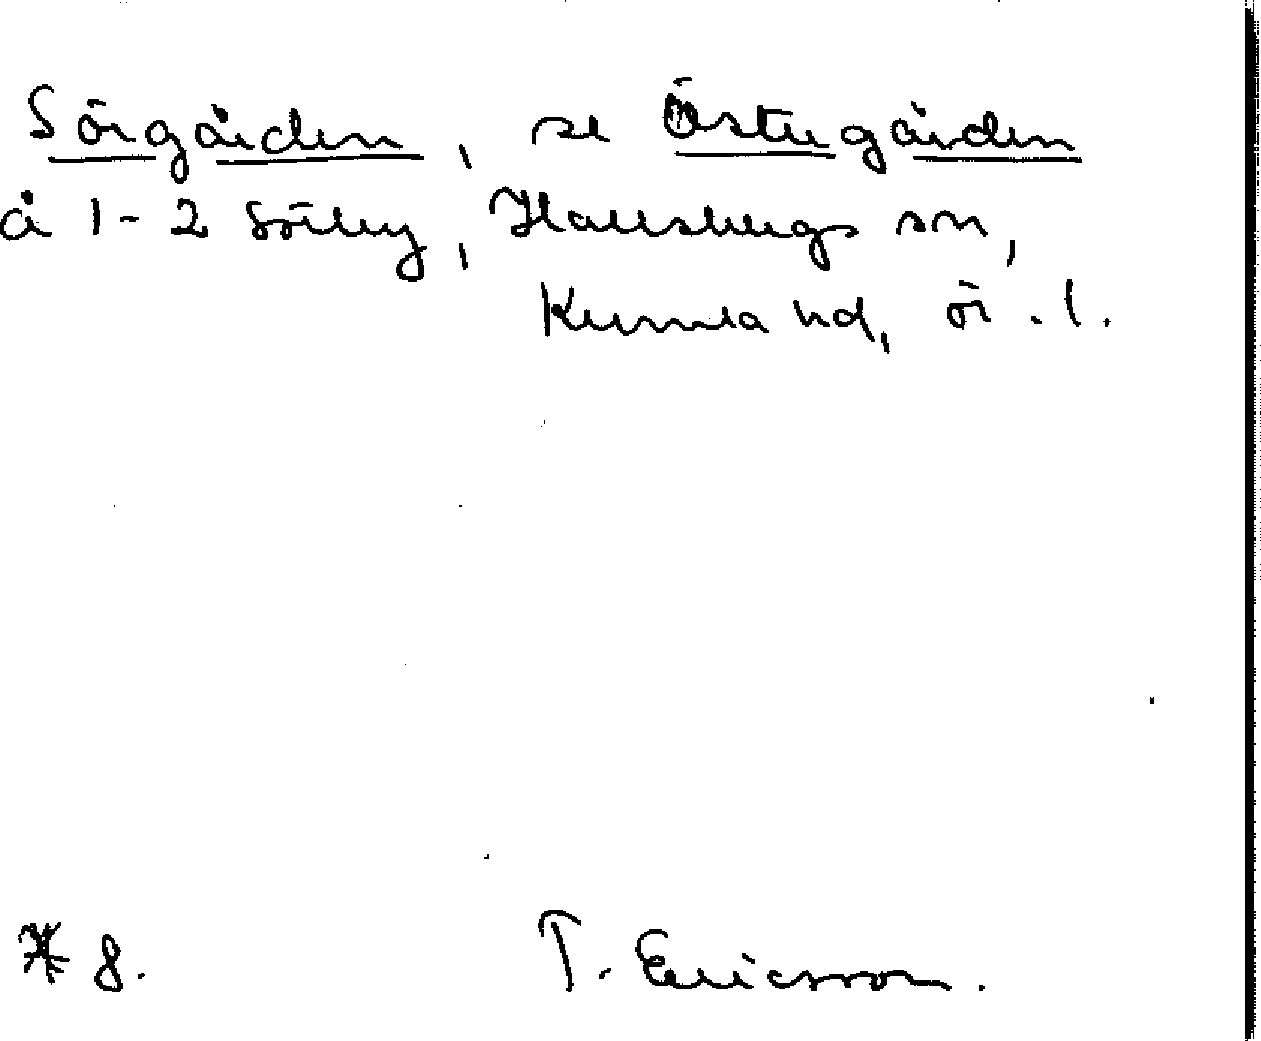 Sörgården, se Östergården
å 1-2 Sörby, Hallsbergs sn,
Kumla hd, ör. l.
8.
T. Ericsson.